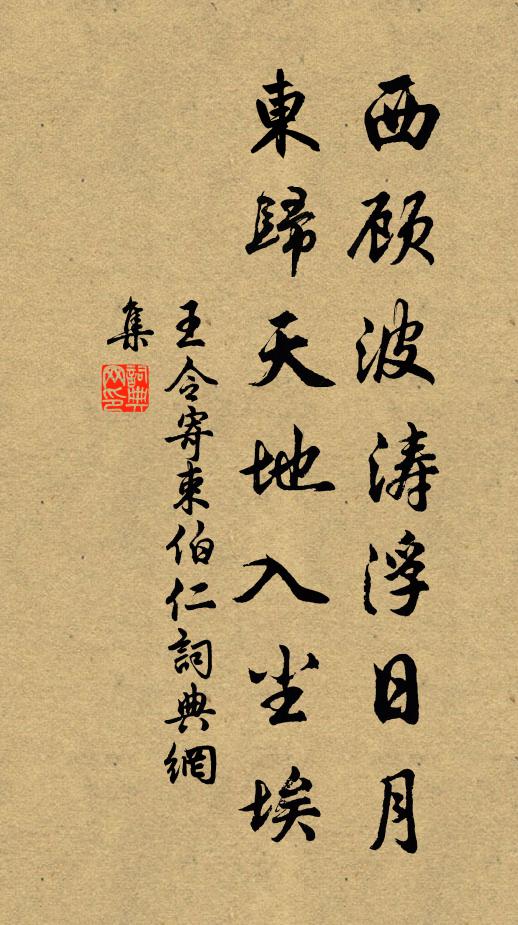 西顾波涛浮日月
東歸天地入尘埃
王令寄束伯仁詞典網
集
詞典
网印